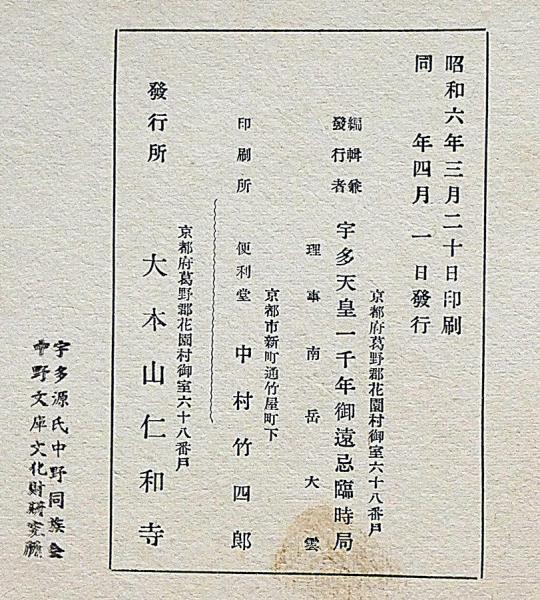 昭和六年三月二十日印刷
同年四月一日發行
京都府葛野郡花園村御室六十八番戶
編輯兼
發行者
宇多天皇一千年御遠忌臨時局
理事南岳大雲
京都市新町通竹屋町下
印刷所
便利堂
中村竹四郎
京都府葛野郡花園村御室六十八番戶
發行所
大本山仁和寺
宇多源氏中野同族会
中野文庫文化財研究